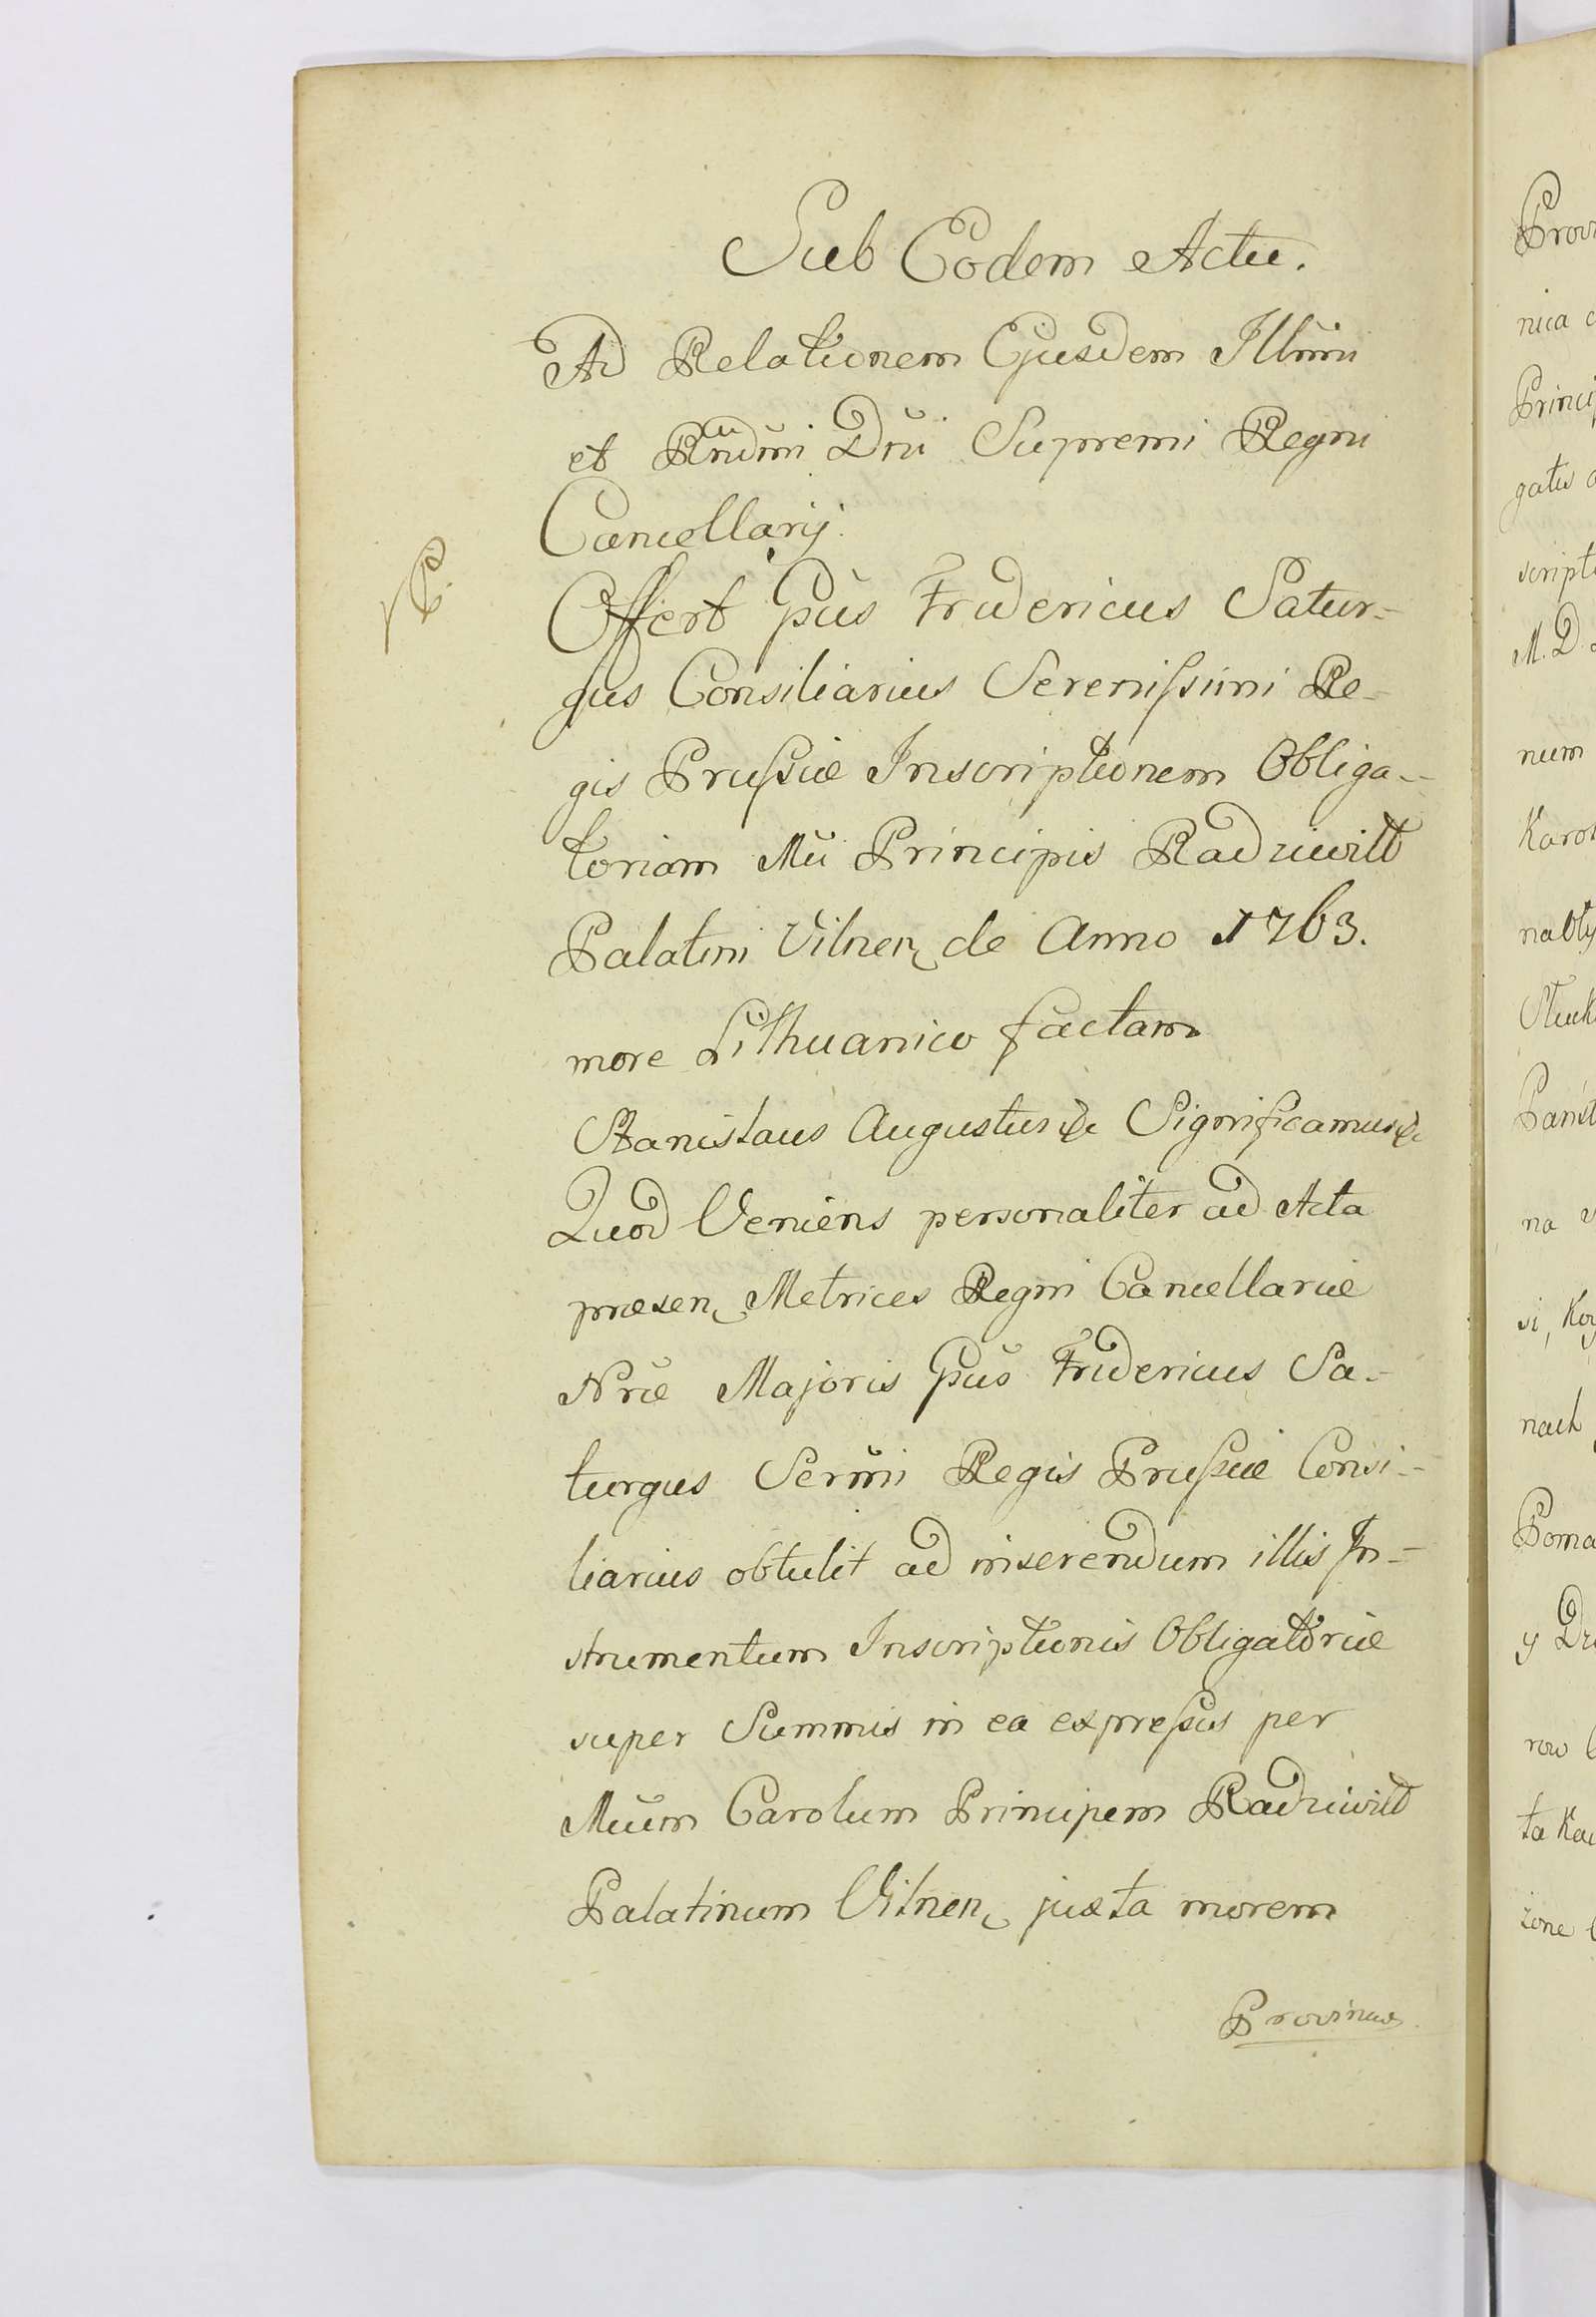 Sub Eodem Actu.
Ad Relationem Ejusdem Illmi
et Rndmi Dni Supremi Regni
Cancellarij.
Offert Gnus Fridericus Satur-
gus Consiliarius Serenissimi Re-
gis Prussiæ Inscriptionem Obliga-
toriam Mci Principis Radziwiłł
Palatini Vilnen de Anno 1763.
more Lithuanico factam
Stanislaus Augustus &c Significamus &c
Quod Veniens personaliter ad Acta
præsen Metrices Regni Cancellariæ
Nræ Majoris Gnus Fridericus Sa-
turgus Sermi Regis Prussiæ Consi-
liarius obtulit ad inserendum illis In-
strumentum Inscriptionis Obligatoriæ
super Summis in ea expressis per
Mcum Carolum Principem Radziwiłł
Palatinum Vilnen juxta morem
Provinciæ
Prov
nica
Princi
gatu
script
M. D.
num
Karol
Słuck
na
si, Ko
nach
Poma
y Dr
row
ta Ka
zone